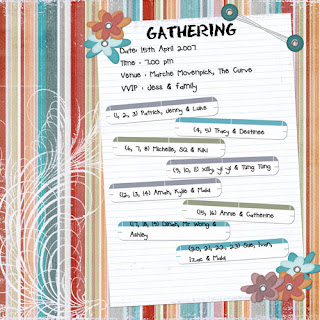 GATHERING
Date: 15th April 2007
Time : 7.00 pm
Venue : Marche Movenpick, The Curve
VVIP : Jess & family
(1, 2, 3) Patrick, Jenny & Luke
(4, 5) Tracy & Destinee
(6, 7, 8) Michelle, SQ & Kiki
(9, 10, 11) Xilly, yi yi & Tung Tung
(12, 13, 14) Amah, Kylie & Maid
(15, 16) Annie & Catherine
(17, 18, 19) Mr Wong &
Ashley
(20, 21, 22, 23) Sue, Ivan,
Izac & Maid